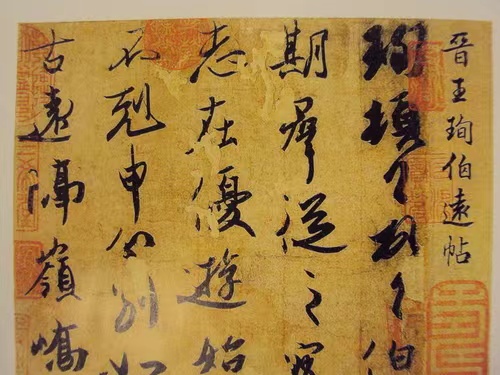 晉王珣伯遠帖
珣頓々首々伯
期羣從之寶
志在優遊始
不剋申分別如
古遠隔嶺嶠